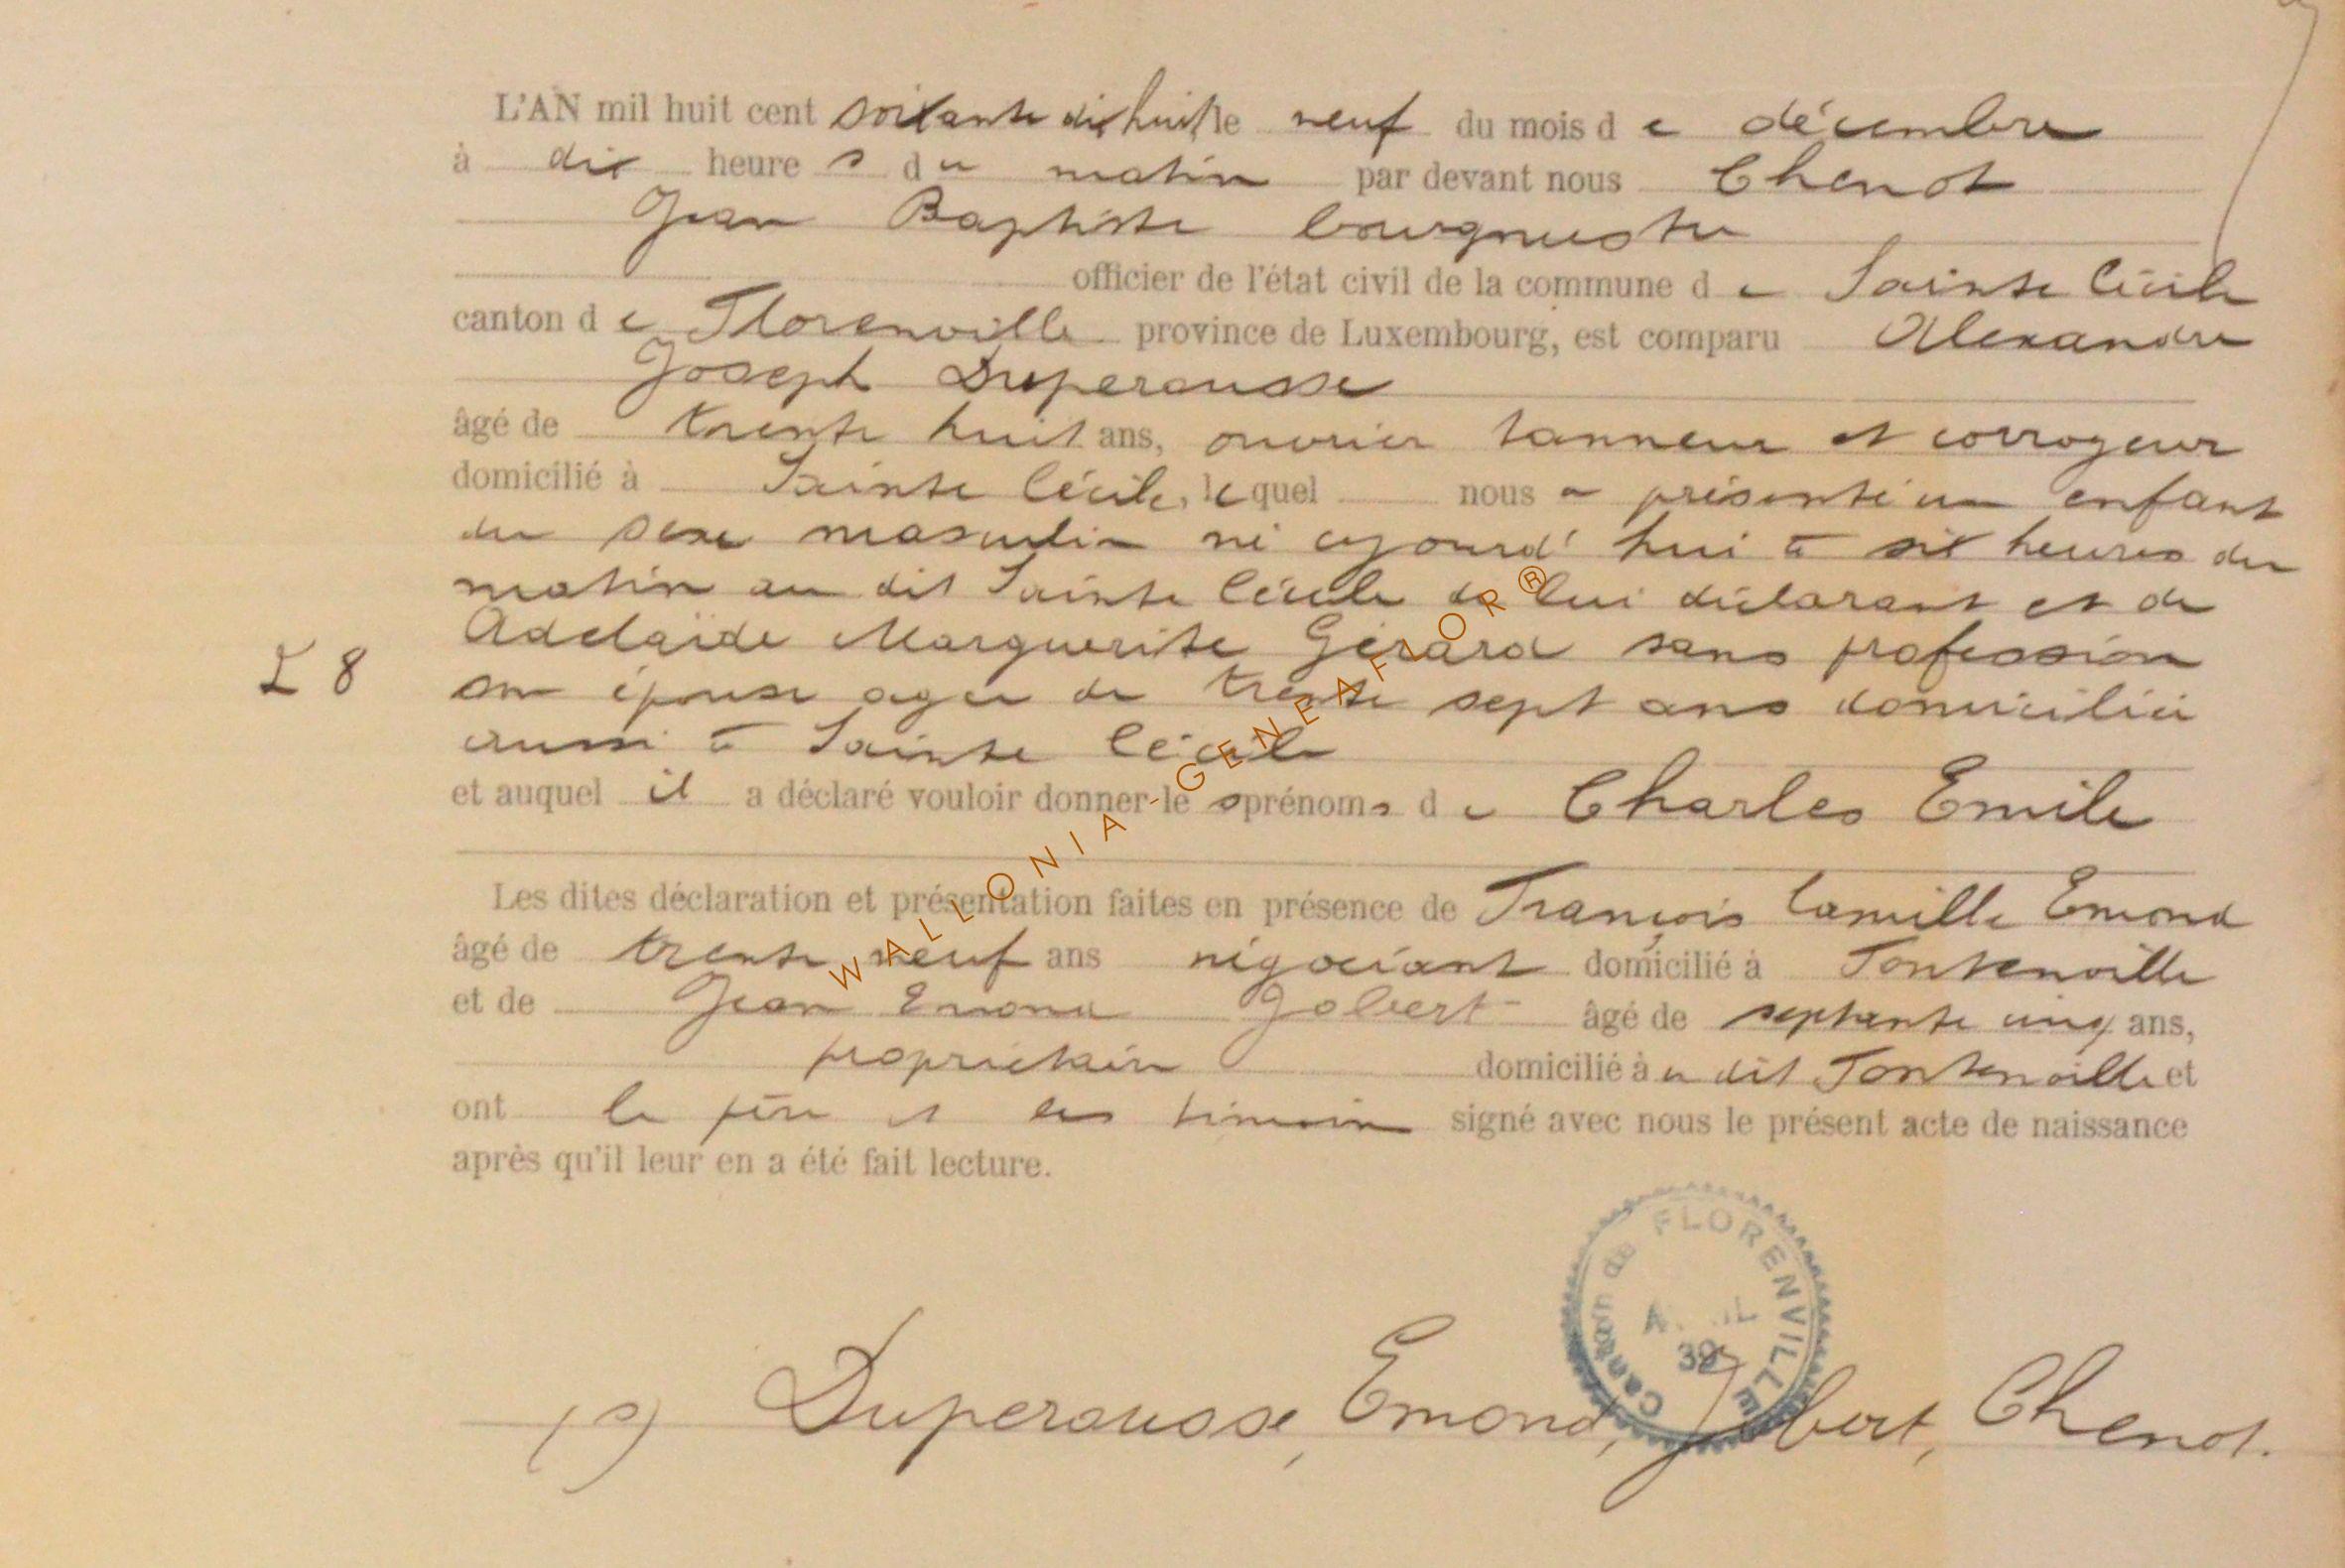 L'AN mil huit cent soixante dix huit le neuf du mois de décembre
à dix heures du matin par devant nous Chenot
Jean Baptiste bourgmestre
officier de l'état civil de la commune de Sainte Cécile
canton de Florenville province de Luxembourg, est comparu Alexandre
Joseph Duperousse
âgé de trente huit ans, ouvrier tanneur et corroyeur
domicilié à Sainte Cécile, lequel nous a présenté un enfant
du sexe masculin né cejourd'hui à six heures du
matin au dit Sainte Cécile de lui déclarant et de
Adelaïde Marguerite Gérard sans profession
son épouse agée de trente sept ans domiciliée
£ 8
aussi à Sainte Cécile
et auquel il a déclaré vouloir donner les prénoms de Charles Emile
Les dites déclaration et présentation faites en présence de François Camille Emond
âgé de trente neuf ans négociant domicilié à Fontenoille
et de Jean Emond Jobert âgé de septante cinq ans,
propriétaire domicilié au dit Fontenoille et
ont le père et les témoins signé avec nous le présent acte de naissance
après qu'il leur en a été fait lecture.
Canton de FLORENVILLE
39
(s) Duperousse, Emond, Jobert, Chenot.
WALLONIA-GENEAFLOR®